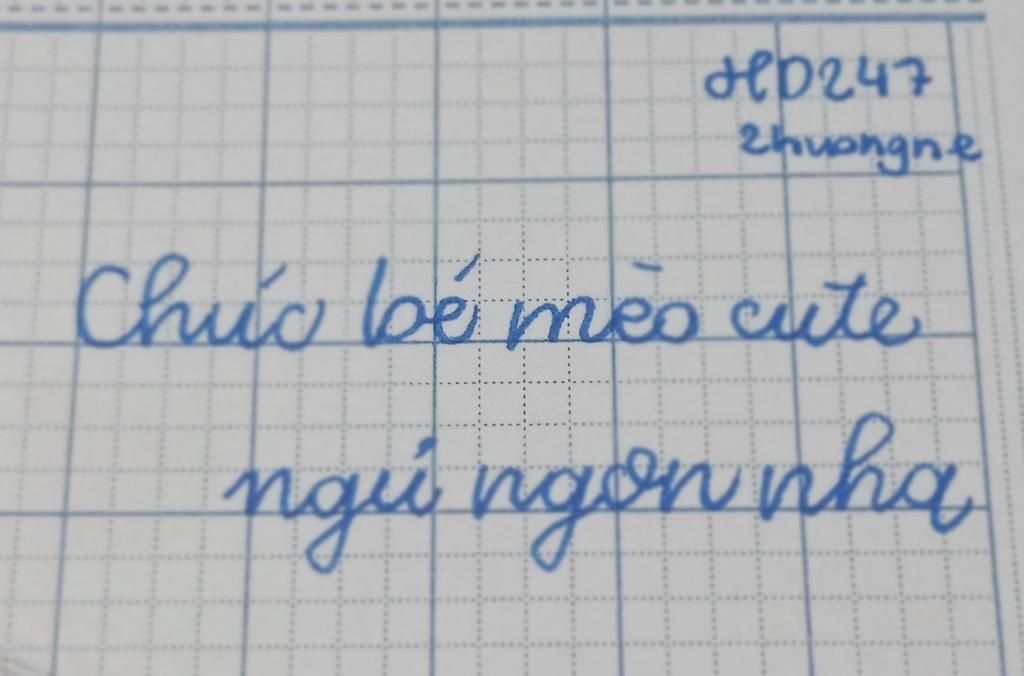 HD247
2huongne
Chúc bé mèo cute
ngủ ngon nha